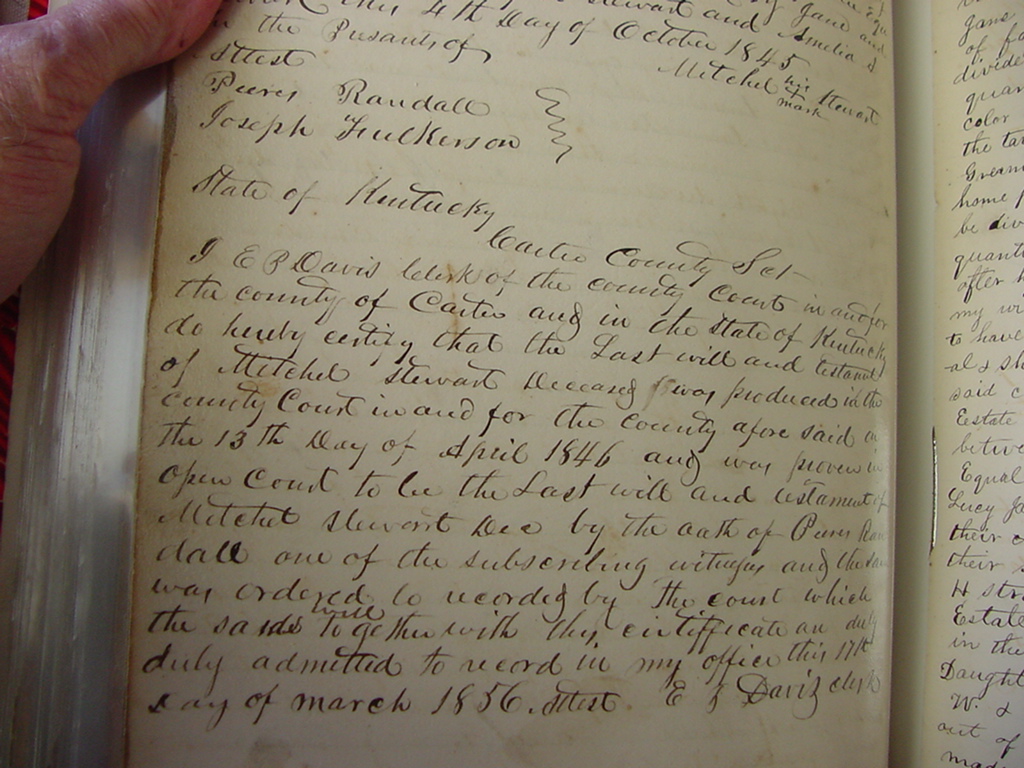 this 4th Day of October 1845
in the Presants of
Attest
Mitchel his Stewart
mark
Peeres Randall
Joseph Fulkerson
State of Kentucky
Carter County Sct
I E P Davis Clerk of the county Court in and for
the county of Carter and in the State of Kentucky
do hereby certify that the Last will and testament
of Mitchel Stewart Deceased was produced in the
county Court in and for the County afore said on
the 13th Day of April 1846 and was proven in
open Court to be the Last will and testament of
Mitchel Stewart Dec by the oath of Peeres Ran
dall one of the subscribing witnesses and the same
was ordered to recorded by the court which
will
the sands together with this certifficate an duly
duly admitted to record in my office this 17th
Day of march 1856. Attest E P Davis clerk
Jane
of
divide
quan
color
the
home
be div
quanti
after
my wi
to have
said c
Estate
betwe
Equal
Lucy Ja
their
their
H
Estate
in the
Daught
W. &
out of
made